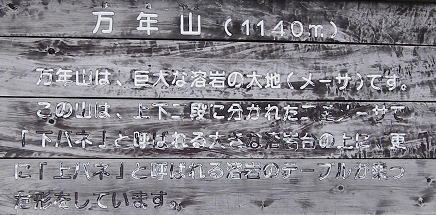 はねやま
万年山（1140m）
万年山は、巨大な溶岩の大地（メーサ）です。
この山は、上下二段に分かれた メーサで
「下バネ」と呼ばれる大きな溶岩台の上に、更
に「上バネ」と呼ばれる溶岩のテーブルが乗っ
た形をしています。